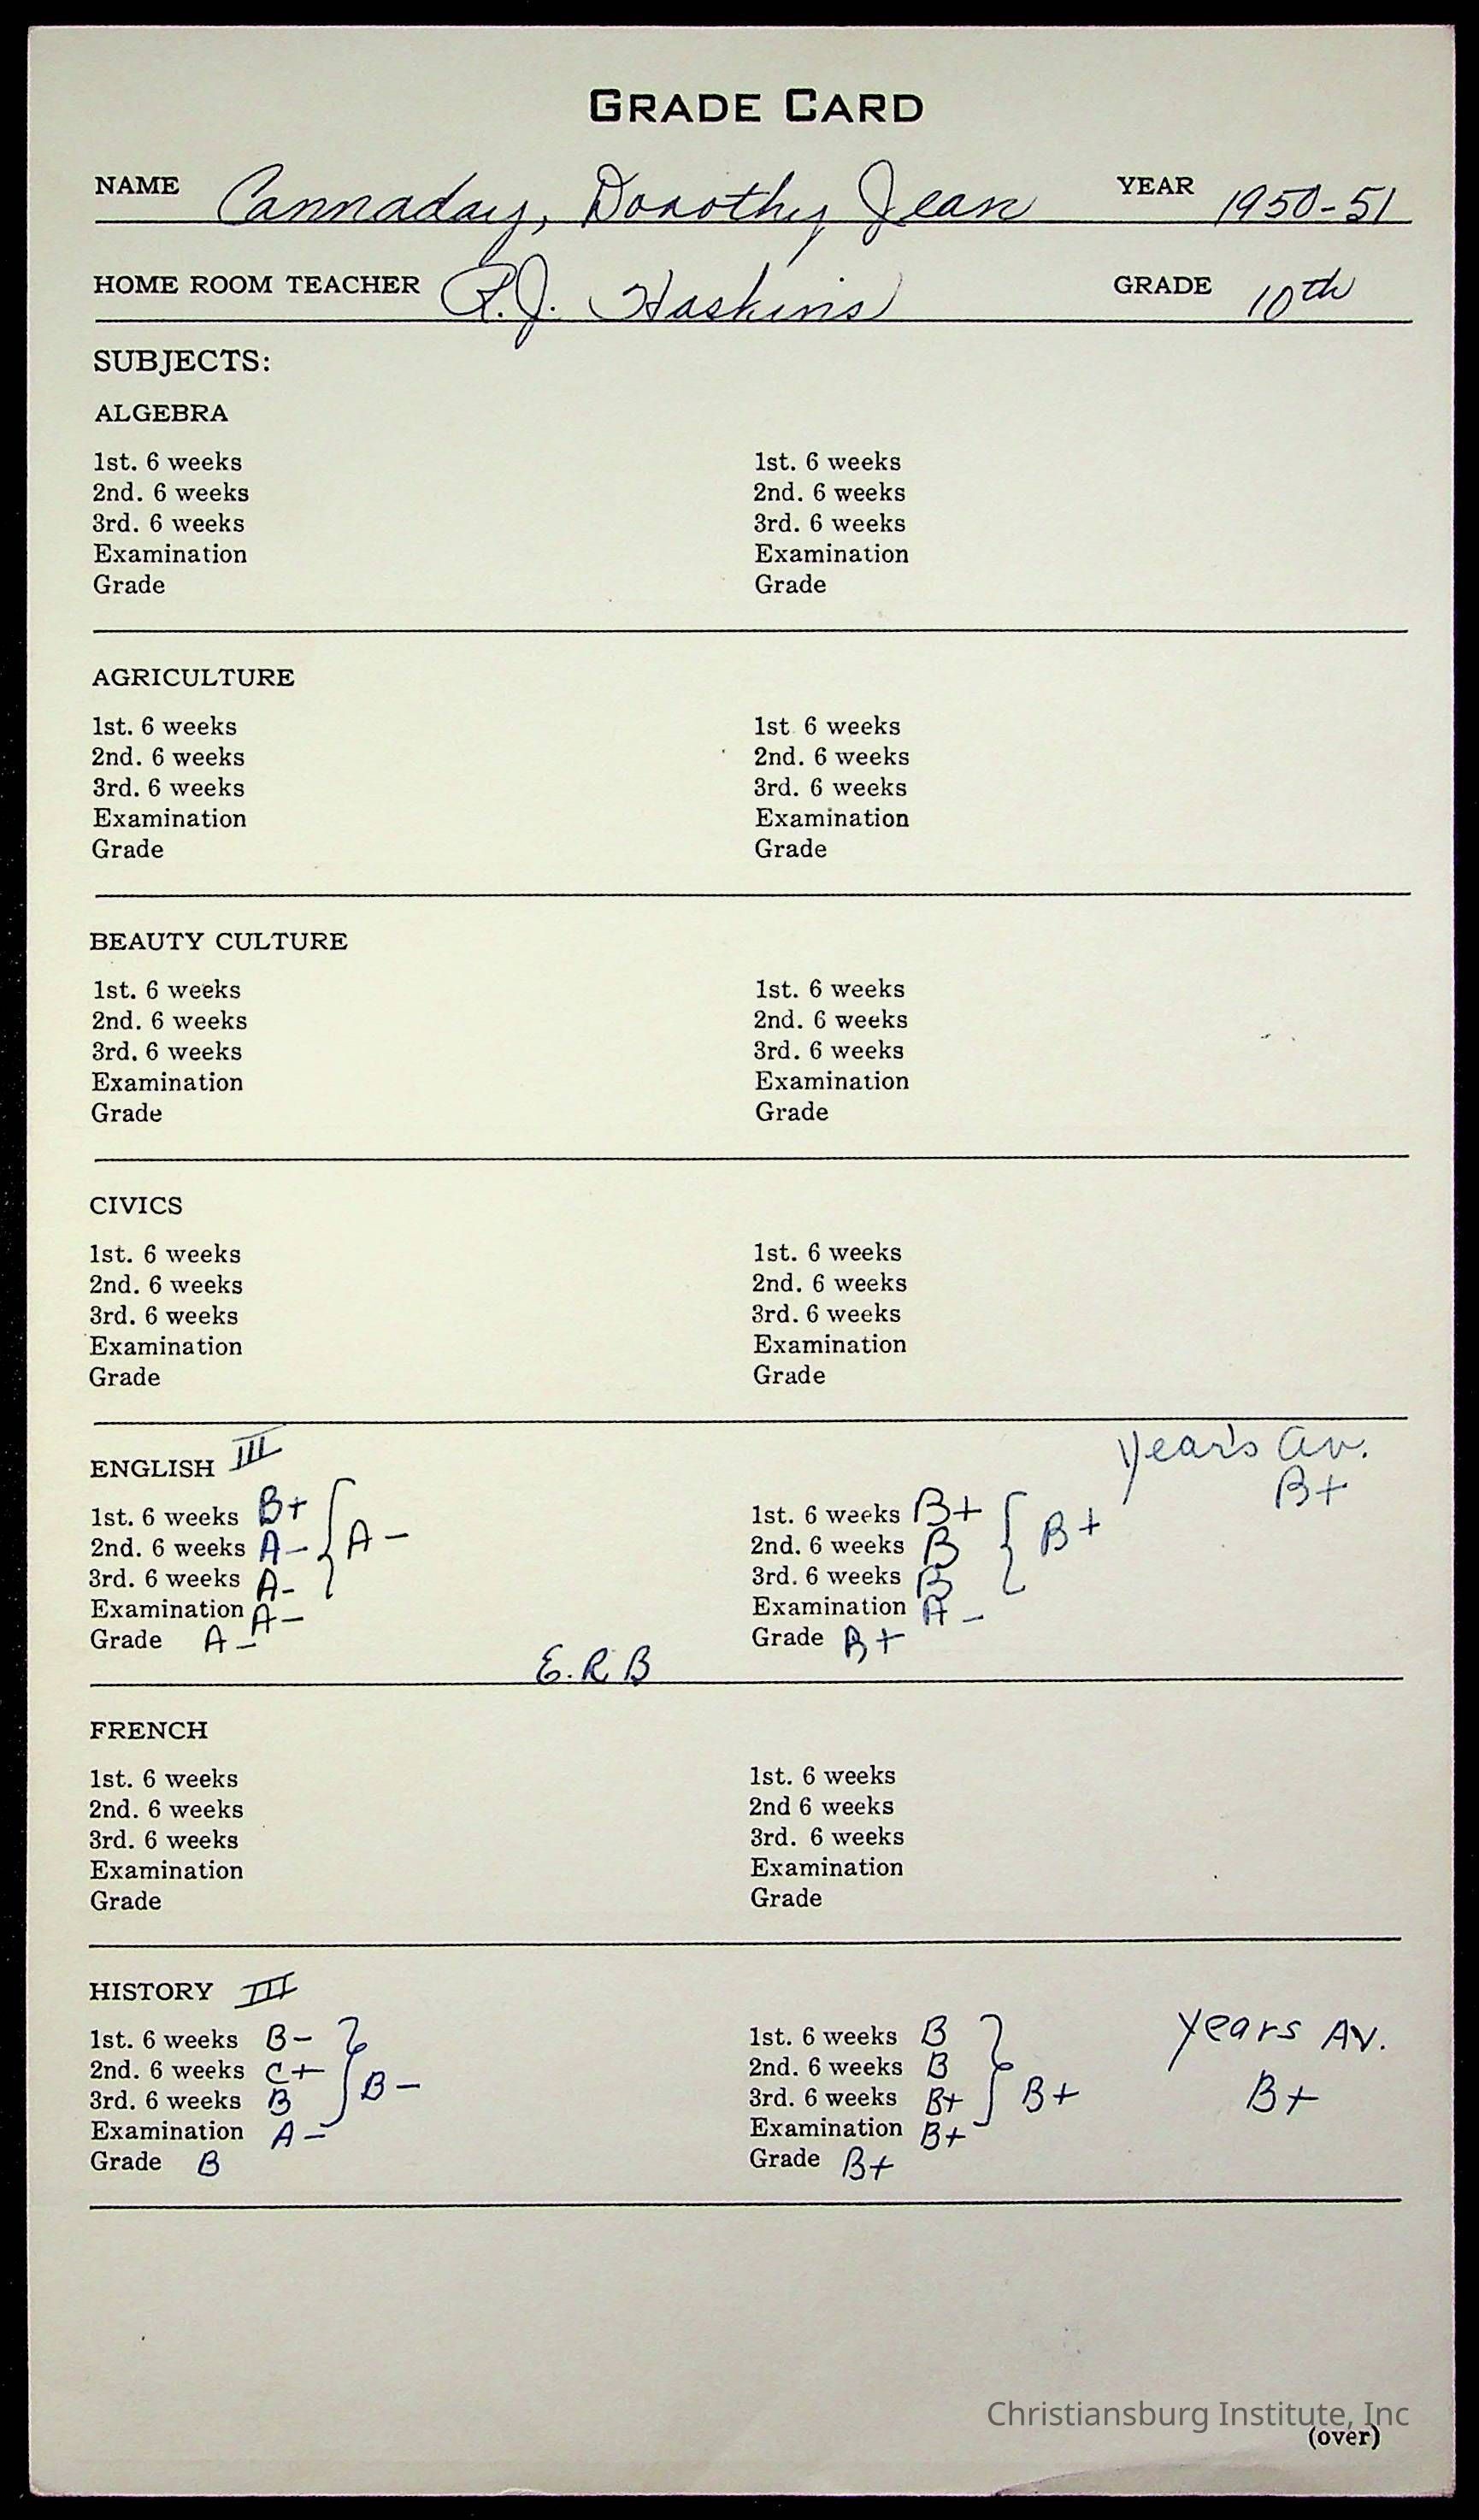 GRADE CARD
NAME Cannaday, Dorothy Jean YEAR 1950-51
HOME ROOM TEACHER R.J. Haskins GRADE 10th
SUBJECTS:
ALGEBRA
1st. 6 weeks 1st. 6 weeks
2nd. 6 weeks 2nd. 6 weeks
3rd. 6 weeks 3rd. 6 weeks
Examination Examination
Grade Grade
AGRICULTURE
1st. 6 weeks 1st 6 weeks
2nd. 6 weeks 2nd. 6 weeks
3rd. 6 weeks 3rd. 6 weeks
Examination Examination
Grade Grade
BEAUTY CULTURE
1st. 6 weeks 1st. 6 weeks
2nd. 6 weeks 2nd. 6 weeks
3rd. 6 weeks 3rd. 6 weeks
Examination Examination
Grade Grade
CIVICS
1st. 6 weeks 1st. 6 weeks
2nd. 6 weeks 2nd. 6 weeks
3rd. 6 weeks 3rd. 6 weeks
Examination Examination
Grade Grade
ENGLISH III year's av.
1st. 6 weeks B+ 1st. 6 weeks B+ B+
2nd. 6 weeks A- A- 2nd. 6 weeks B B+
3rd. 6 weeks A- 3rd. 6 weeks B
Examination A- Examination A-
Grade A- Grade B+
E.R.B
FRENCH
1st. 6 weeks 1st. 6 weeks
2nd. 6 weeks 2nd 6 weeks
3rd. 6 weeks 3rd. 6 weeks
Examination Examination
Grade Grade
HISTORY III
1st. 6 weeks B- 1st. 6 weeks B years Av.
2nd. 6 weeks C+ B- 2nd. 6 weeks B
3rd. 6 weeks B 3rd. 6 weeks B+ B+ B+
Examination A- Examination B+
Grade B Grade B+
Christiansburg Institute, Inc
(over)